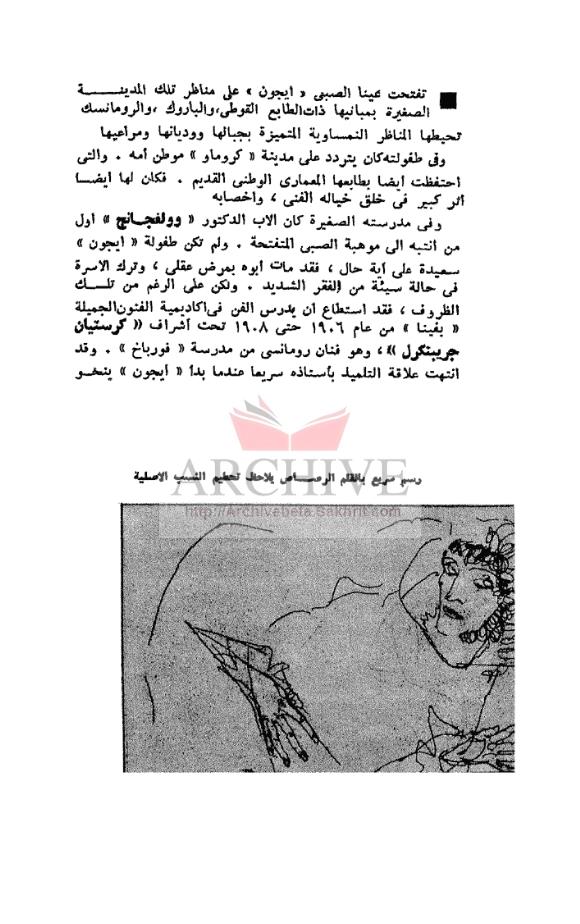 تفتحت عينا الصبى « ايجون » على مناظر تلك المدينة
الصغيرة بمبانيها ذات الطابع القوطى ،والباروك ،والرومانسك
تحيطها المناظر النمساوية المتميزة بجبالها ووديانها ومراعيها
وفى طفولته كان يتردد على مدينة « كروماو » موطن أمه . والتى
احتفظت أيضا بطابعها المعمارى الوطنى القديم . فكان لها أيضا
أثر كبير فى خلق خياله الفنى ، واخصابه
وفى مدرسته الصغيرة كان الاب الدكتور « وولفجانج » أول
من انتبه الى موهبة الصبى المتفتحة . ولم تكن طفولة « ايجون »
سعيدة على أية حال ، فقد مات أبوه بمرض عقلى ، وترك الاسرة
فى حالة سيئة من الفقر الشديد . ولكن على الرغم من تلك
الظروف ، فقد استطاع أن يدرس الفن فى اكاديمية الفنون الجميلة
« بفينا » من عام ١٩٠٦ حتى ١٩٠٨ تحت أشراف « كرستيان
جريبنكرل » ، وهو فنان رومانسى من مدرسة « فورباخ » . وقد
انتهت علاقة التلميذ بأستاذه سريعا عندما بدأ « ايجون » ينحو
رسم سريع بالقلم الرصاص يلاحظ تحطيم النسب الاصلية
ARCHIVE
http://Archivebeta.Sakhrit.com